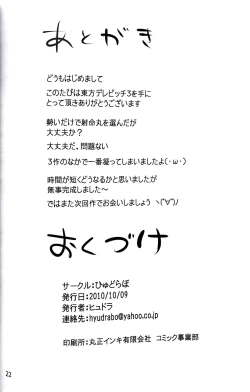 あとがき
どうもはじめまして
このたびは東方デレビッチ3を手に
とって頂きありがとうございます
勢いだけで射命丸を選んだが
大丈夫か？
大丈夫だ、問題ない
3作のなかで一番凝ってしまいましたよ(・ω・)
時間が短くどうなるかと思いましたが
無事完成しました～
ではまた次回作でお会いしましょう ヽ(´▽`)ﾉ
おくづけ
サークル：ひゅどらぼ
発行日：2010/10/09
発行者：ヒュドラ
連絡先：hyudrabo@yahoo.co.jp
印刷所：丸正インキ有限会社 コミック事業部
22